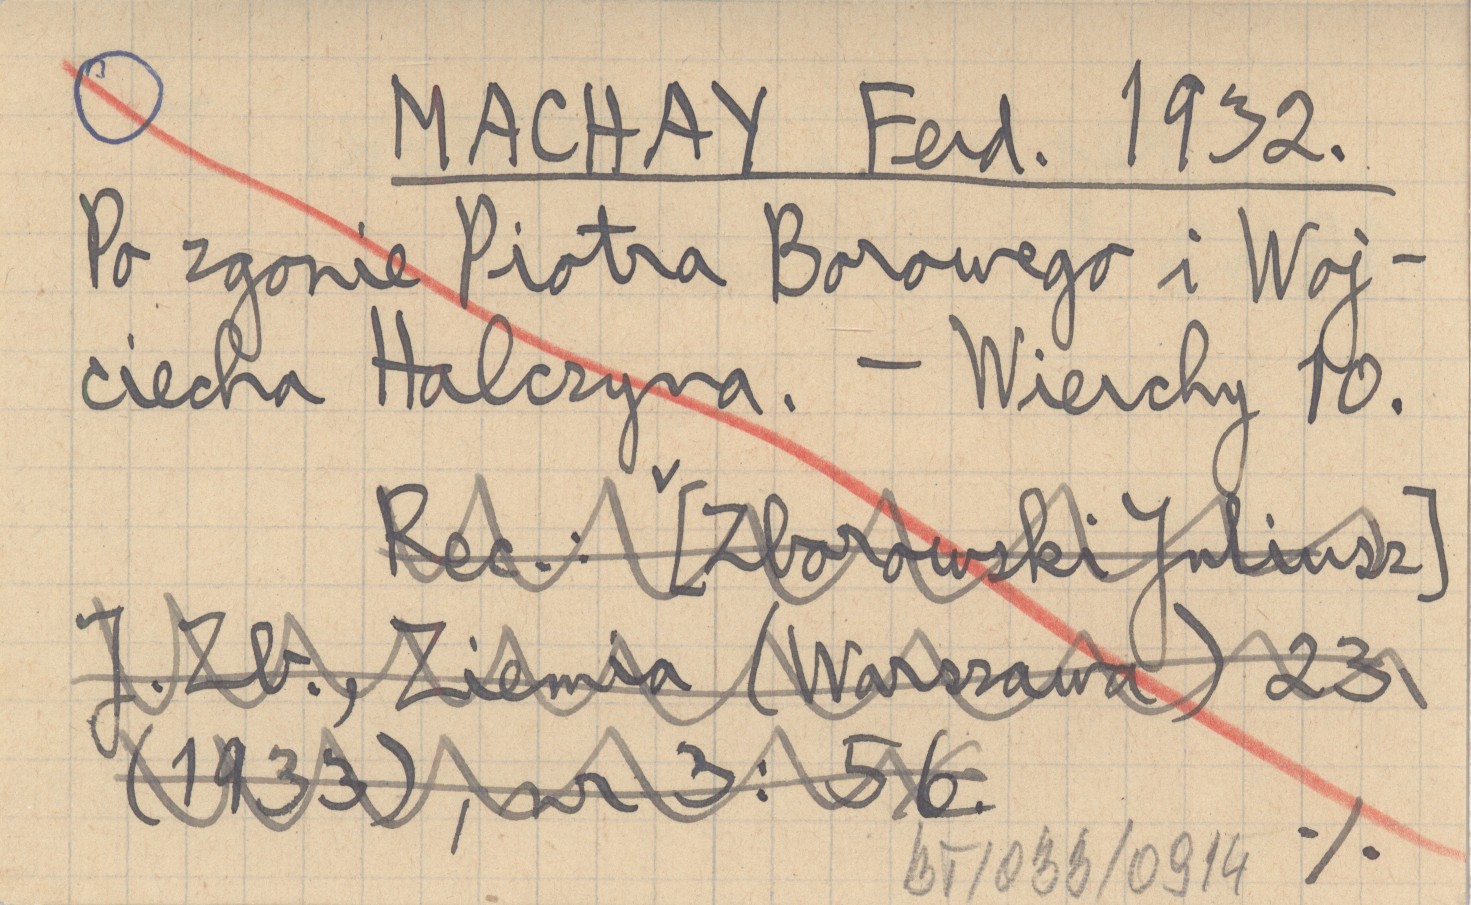 MACHAY Ferd. 1932.
Po zgonie Piotra Borowego i Woj-
ciecha Halczyna. – Wierchy 10.
Rec.: [Zborowski Juliusz]
J. Zb., Ziemia (Warszawa) 23
(1933), nr 3: 56.
·/.
BT/033/0914